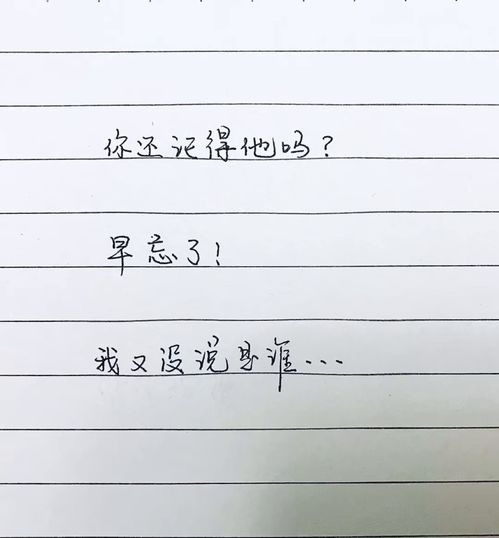 你还记得他吗？
早忘了！
我又没说是谁...